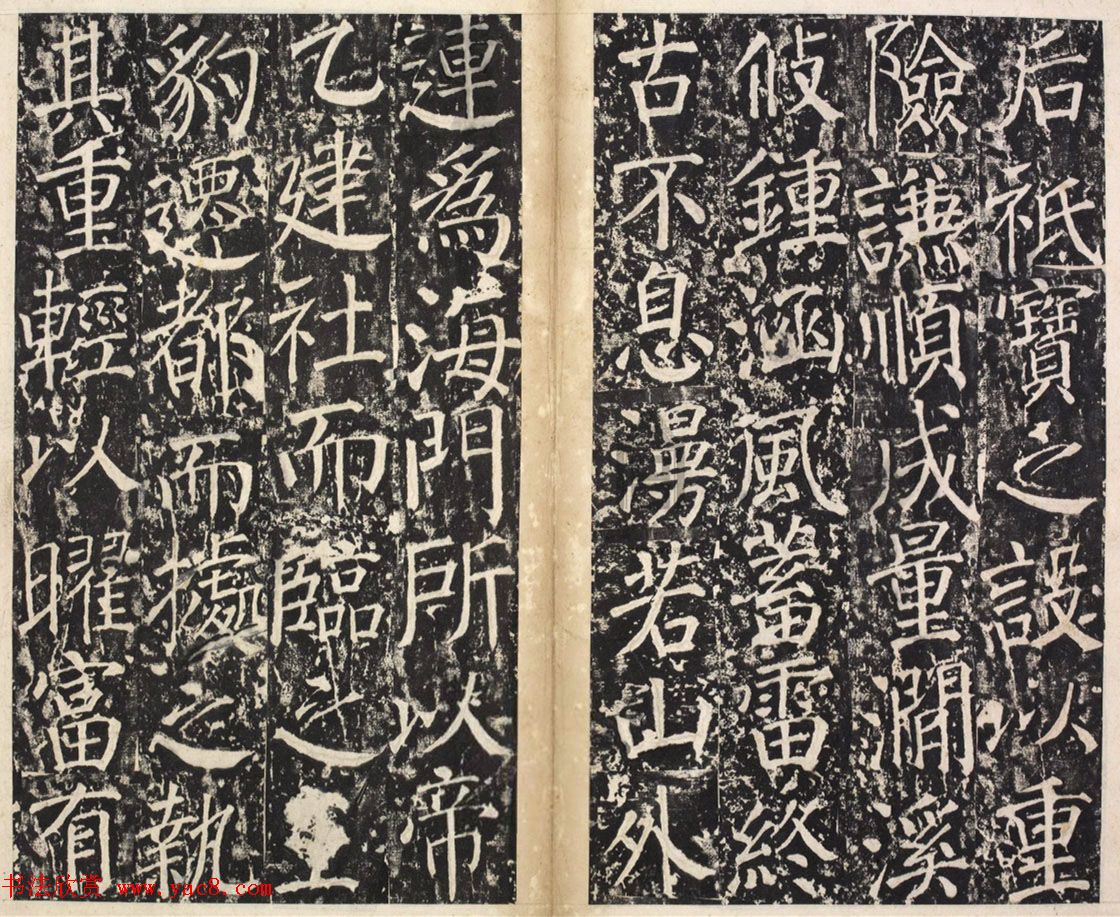 后祇寶之設以重
險謙順成量澗溪
攸鍾涵風蓄雷終
古不息漫若山外
連爲海門所以帝
乙建社而臨之
豹遷都而據之執
其重輕以曜富有
书法欣赏 www.yac8.com